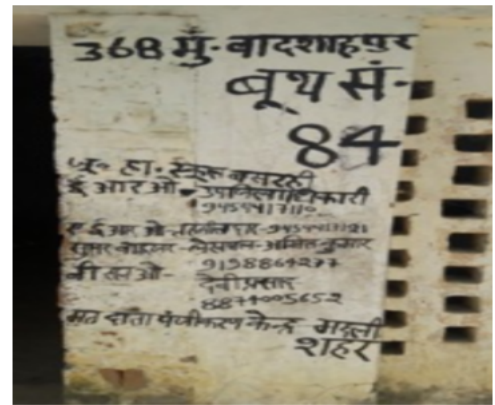 368 मुं- बादशाहपुर
बूथ सं-
84
जू. हा. स्कूल बसरही
ई आर ओ - उपजिलाधिकारी
9454417110
ए ई आर ओ - तहसीलदार - 9454417121
सुपर वाइजर - लेखपाल - अमित कुमार
9198864277
बी एल ओ - देवी प्रसाद
8874005652
मत दाता पंजीकरण केन्द्र मछली
शहर